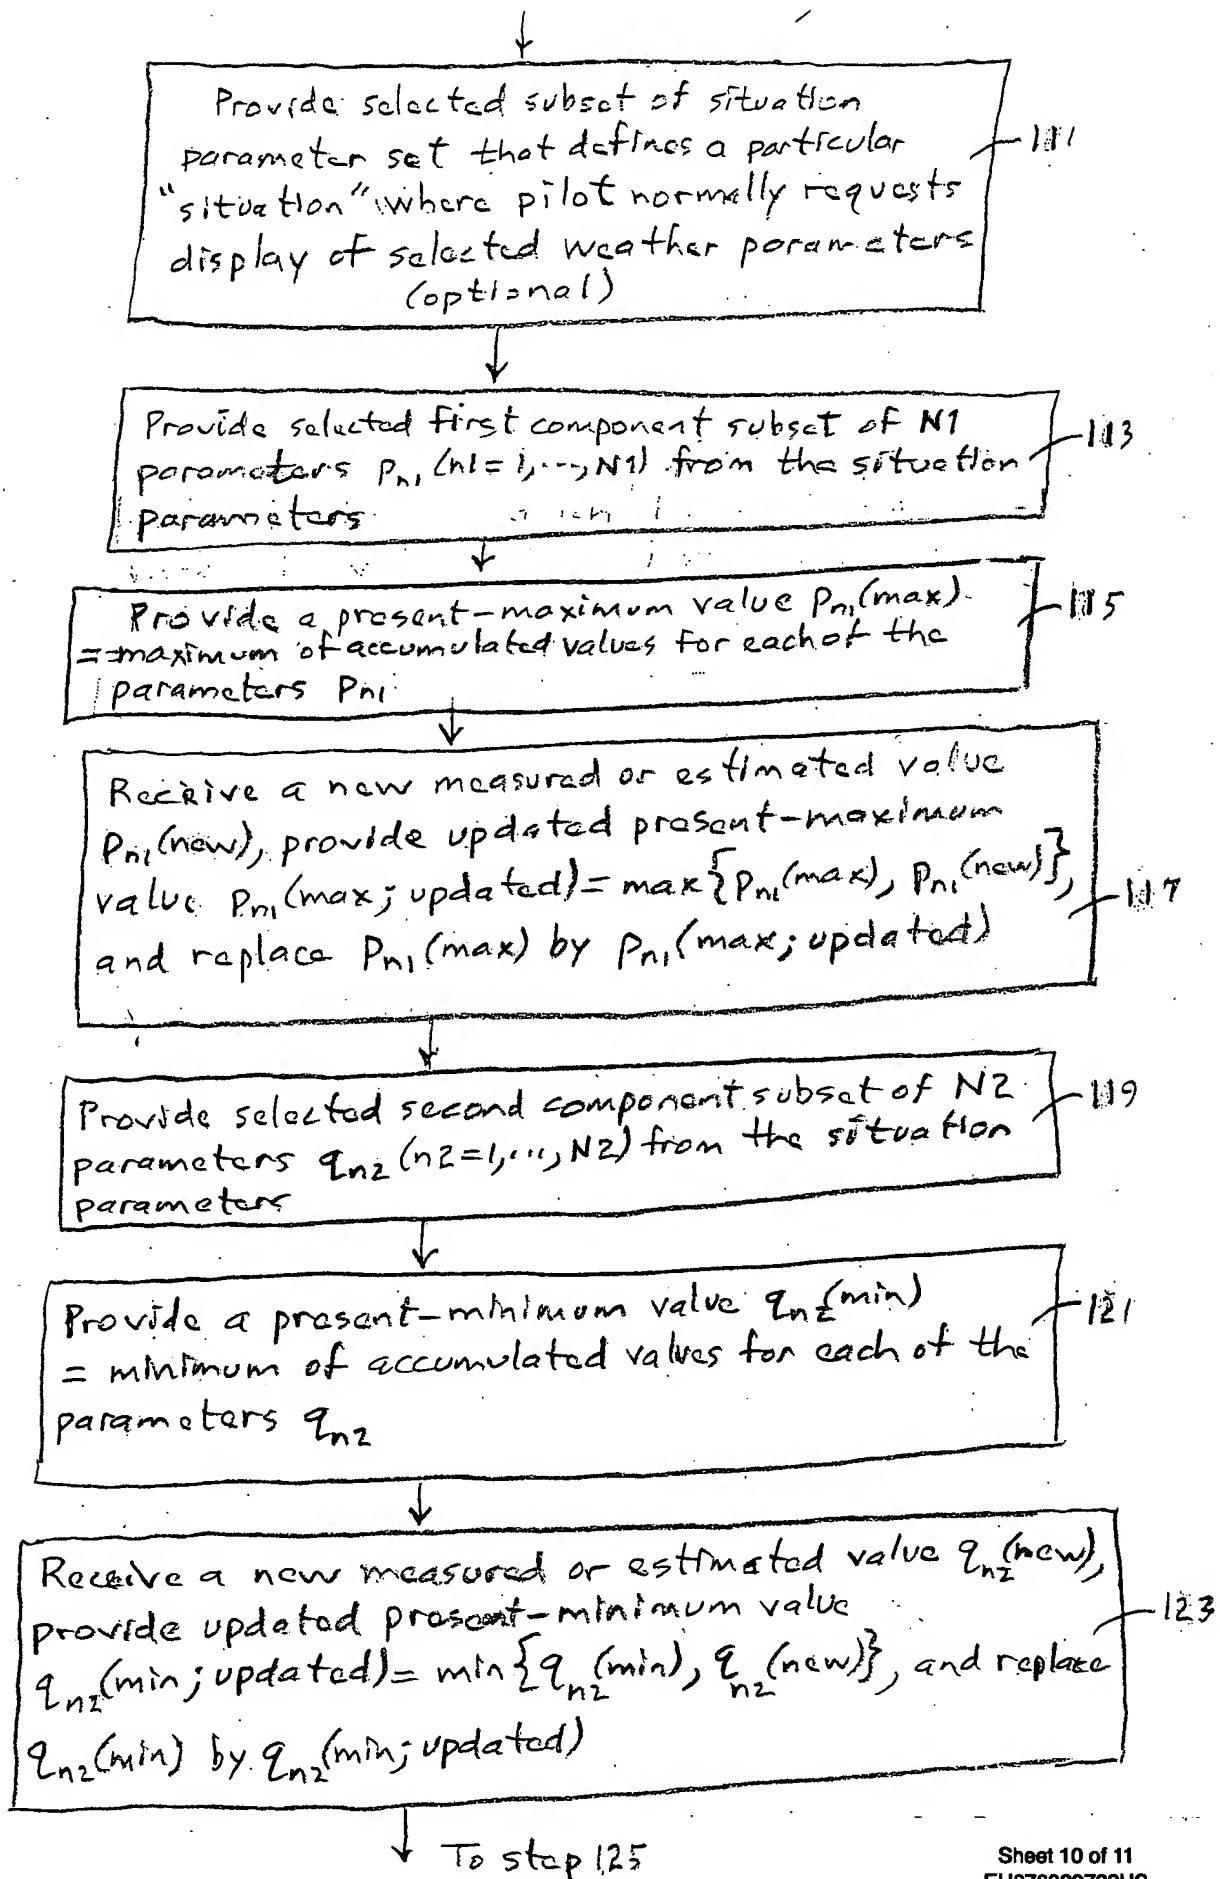 Provide selected subset of situation
parameter set that defines a particular
"situation" where pilot normally requests
display of selected weather parameters
(optional)
111
Provide selected first component subset of N1
parameters pn1 (n1=1,...,N1) from the situation
parameters
113
Provide a present-maximum value pn1(max)
= maximum of accumulated values for each of the
parameters pn1
115
Receive a new measured or estimated value
pn1(new), provide updated present-maximum
value pn1(max; updated)= max{pn1(max), pn1(new)},
and replace pn1(max) by pn1(max; updated)
117
Provide selected second component subset of N2
parameters qn2 (n2=1,...,N2) from the situation
parameters
119
Provide a present-minimum value qn2(min)
= minimum of accumulated values for each of the
parameters qn2
121
Receive a new measured or estimated value qn2(new),
provide updated present-minimum value
qn2(min; updated)= min{qn2(min), qn2(new)}, and replace
qn2(min) by qn2(min; updated)
123
To step 125
Sheet 10 of 11